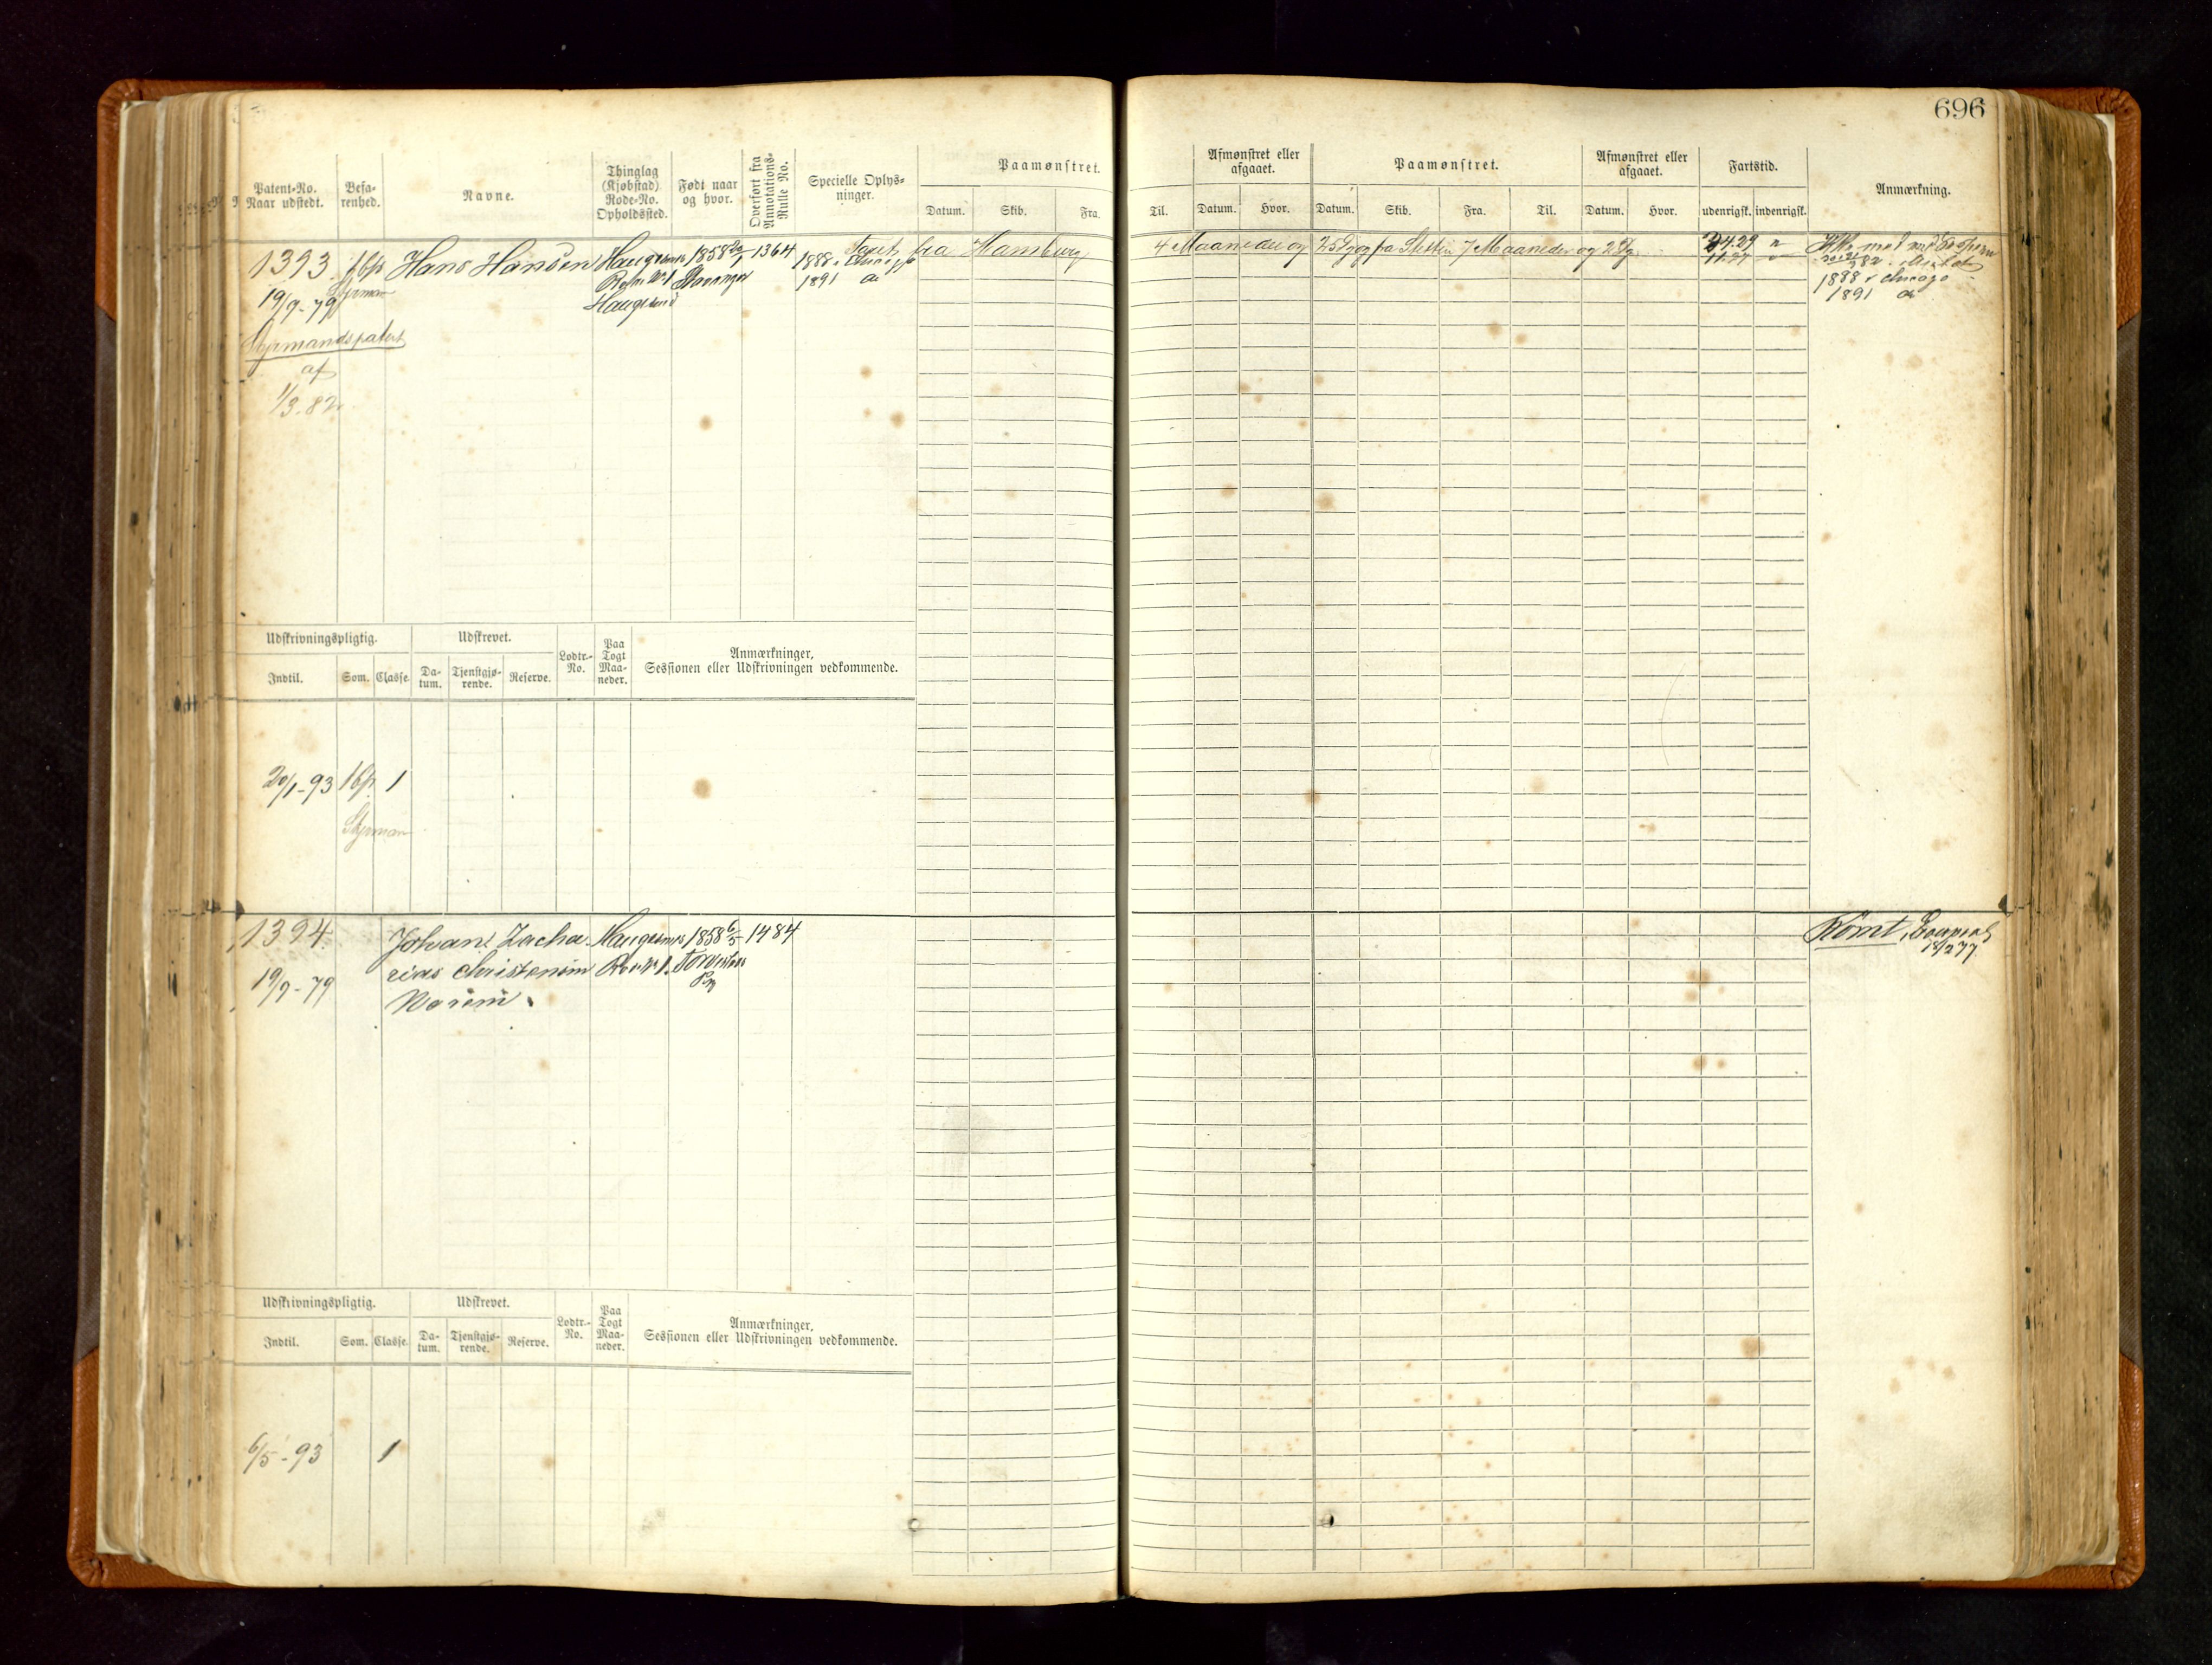 696
Patent-No.
Naar udstedt.
Befa-
renhed.
Navne.
Thinglag
(Kjøbstad)
Rode-No.
Opholdssted.
Født naar
og hvor.
Overført fra
Annotations-
Rulle No.
Specielle Oplys-
ninger.
Paamønstret.
Datum.
Skib.
Fra.
Til.
Afmønstret eller
afgaaet.
Datum.
Hvor.
Paamønstret.
Datum.
Skib.
Fra.
Til.
Afmønstret eller
afgaaet.
Datum.
Hvor.
Fartstid.
udenrigsk.
indenrigsk.
Anmærkning.
1393
19/9-79
Styrmandspatent
af
1/3.82
1bf
Styrman
Hans Hansen
Haugesund
Rode No 1
Haugesund
1858 20/1
Stavanger
1364
1888 i Chicago
1891 do
Faret fra Hamburg
4 Maaneder og 25 Dg og fra Stettin 7 Maaneder og 2 Dg
1888 i Chicago
1891 do
Udskrivningspligtig.
Indtil.
Som.
Classe.
Udskrevet.
Da-
tum.
Tjenstgjø-
rende.
Reserve.
Lodtr.-
No.
Paa
Togt
Maa-
neder.
Anmærkninger,
Sessionen eller Udskrivningen vedkommende.
20/1-93
1bf
1
Styrman
1394
19/9-79
Johan Zacha-
rias Christensen
1858 6/5
1484
Rømt
18/2 77
Udskrivningspligtig.
Indtil.
Som.
Classe.
Udskrevet.
Da-
tum.
Tjenstgjø-
rende.
Reserve.
Lodtr.-
No.
Paa
Togt
Maa-
neder.
Anmærkninger,
Sessionen eller Udskrivningen vedkommende.
6/5-93
1